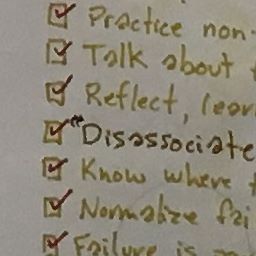 Practice non-
Talk about
Reflect, lear
"Disassociate
Know where
Normalize fai
Failure is